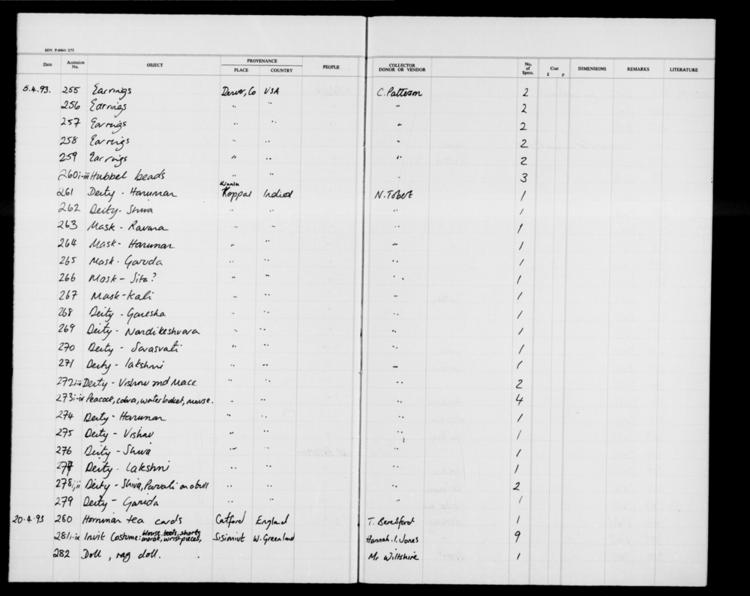 Date Accession No. OBJECT PROVENANCE PLACE COUNTRY PEOPLE COLLECTOR DONOR OR VENDOR No. of Specs. Cost £ P DIMENSIONS REMARKS LITERATURE
5.4.93. 255 Earrings Denver, Co USA C. Patterson 2
256 Earrings " " " 2
257 Earrings " " " 2
258 Earrings " " " 2
259 Earrings " " " 2
260i-iii Hubbel beads " " " 3
261 Deity - Hanuman Koppal India N. Tobert 1
262 Deity - Shiva " " " 1
263 Mask - Ravana " " " 1
264 Mask - Hanuman " " " 1
265 Mask - Garuda " " " 1
266 Mask - Sita? " " " 1
267 Mask - Kali " " " 1
268 Deity - Ganesha " " " 1
269 Deity - Nandikeshvara " " " 1
270 Deity - Sarasvati " " " 1
271 Deity - Lakshmi " " " 1
272i-ii Deity - Vishnu and Mace " " " 2
273i-iv Peacock, cobra, water basket, mouse. " " " 4
274 Deity - Hanuman " " " 1
275 Deity - Vishnu " " " 1
276 Deity - Shiva " " " 1
277 Deity - Lakshmi " " " 1
278i,ii Deity - Shiva, Parvati on a bull " " " 2
279 Deity - Garuda " " " 1
20.4.93 280 Horniman tea cards Catford England T. Beresford 1
281i-ix Inuit Costume: blouse, boots, shorts, wristpieces, Sisimiut W. Greenland Hannah. I. Jones 9
282 Doll, rag doll. Mr Wiltshire 1